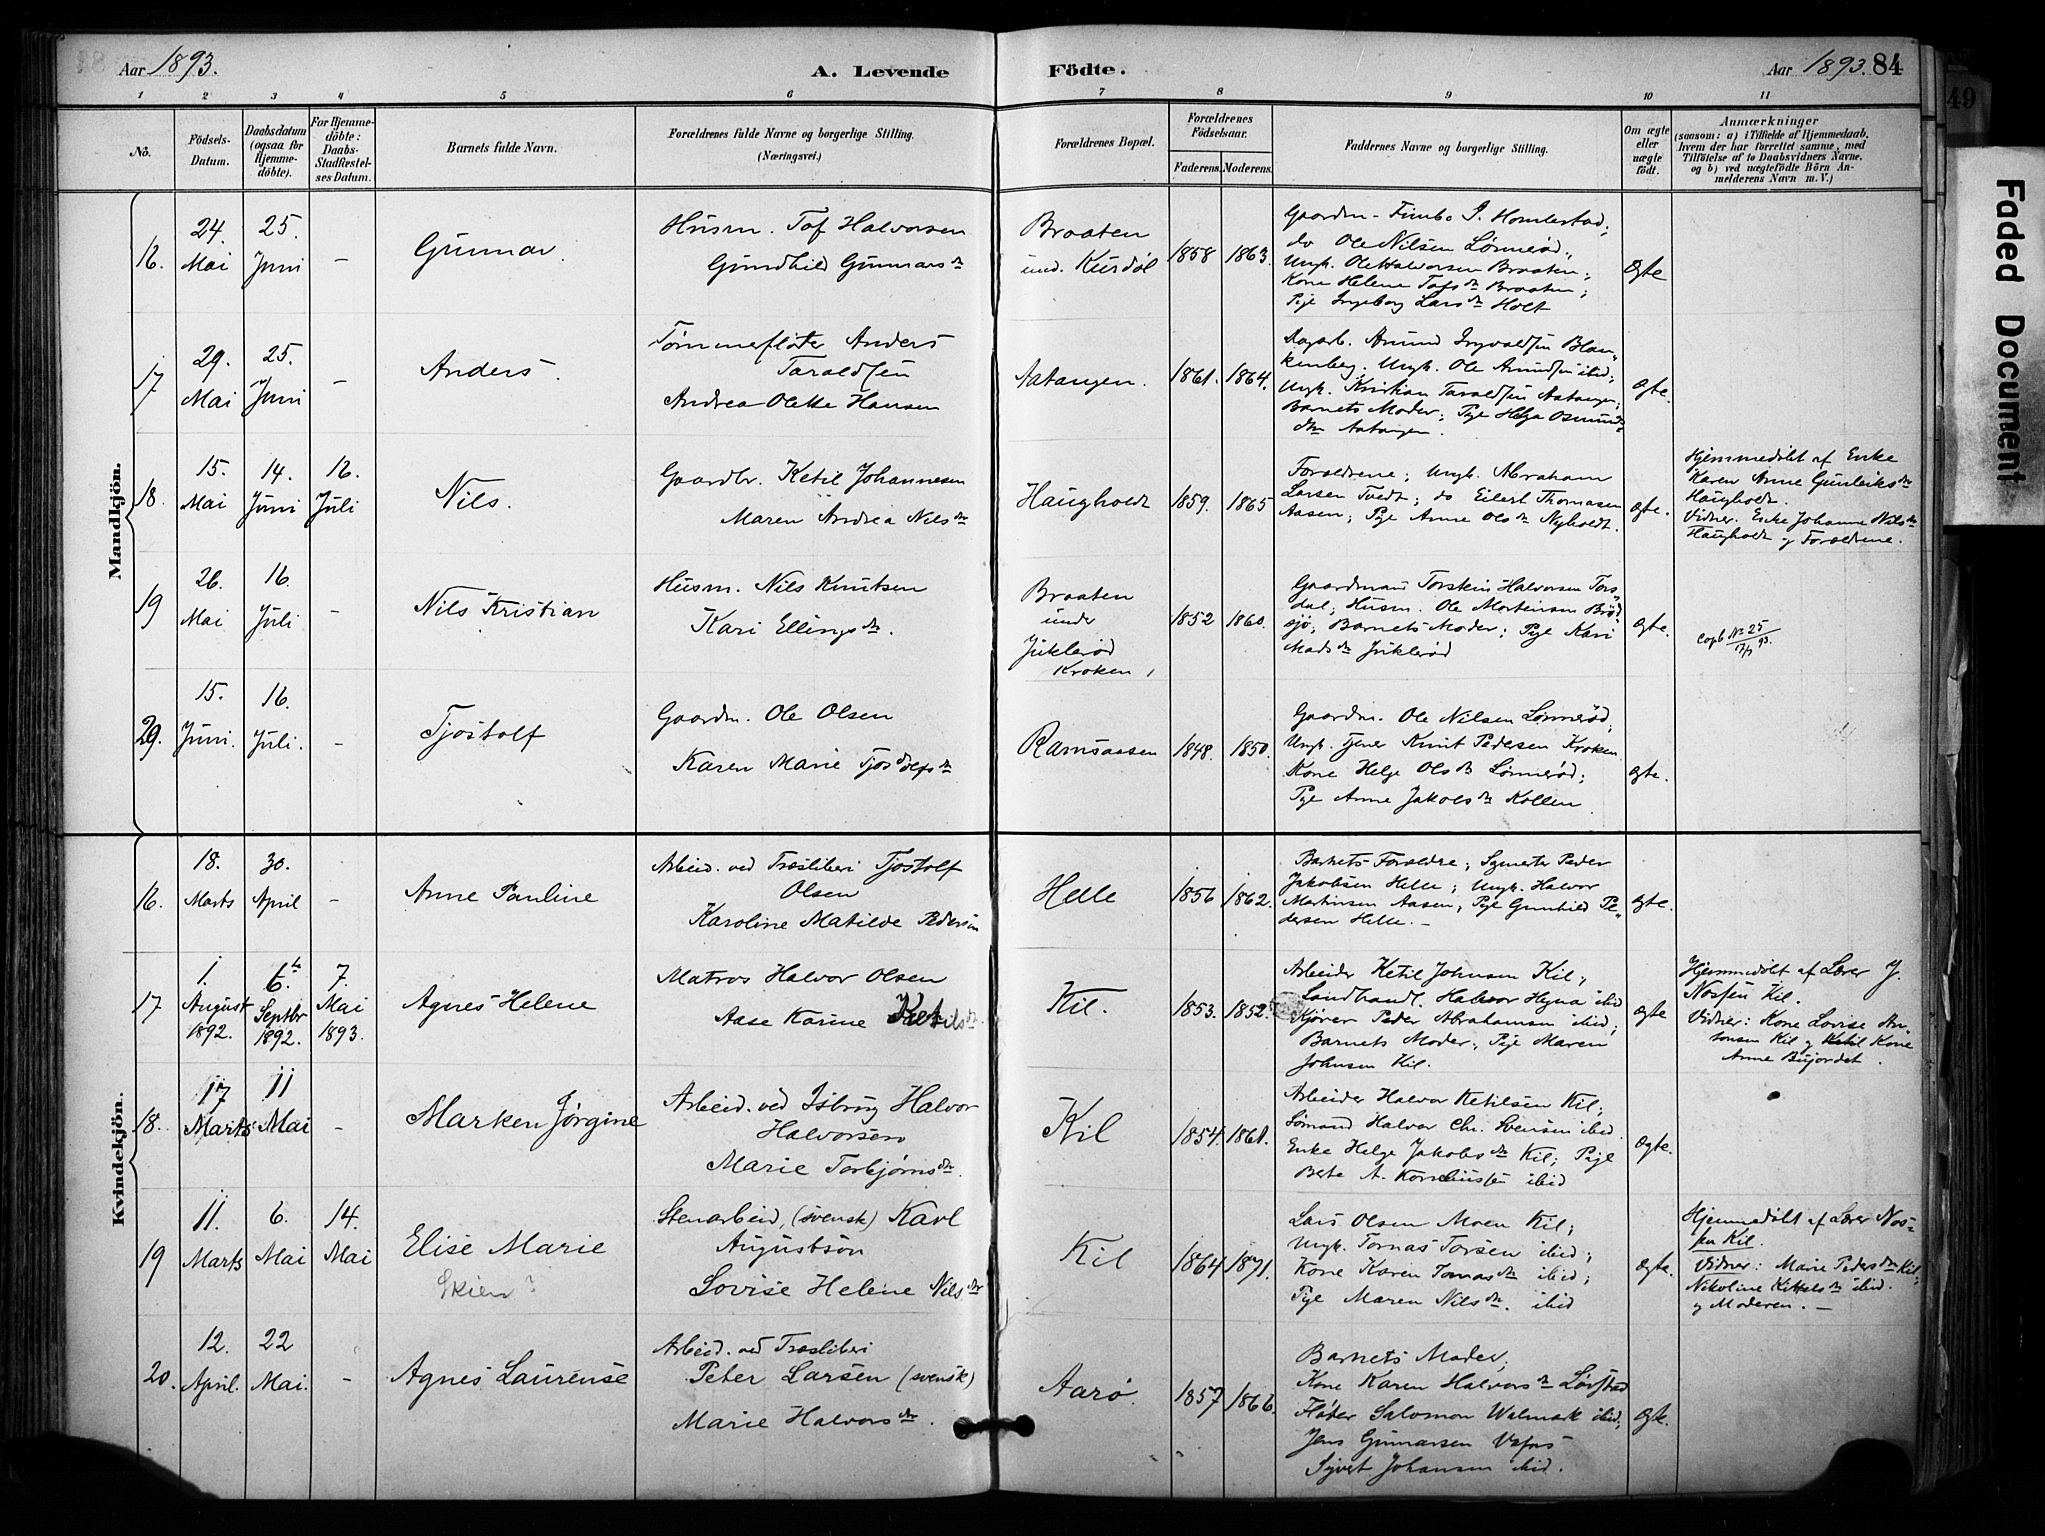 Aar 1893.
A. Levende Födte.
Aar 1893. 84
49
Faded Document
1 2 3 4 5 6 7 8 9 10 11
No.
Födsels-
Datum.
Daabsdatum
(ogsaa for
Hjemme-
döbte).
For Hjemme-
döbte:
Daabs-
Stadfæstel-
ses Datum.
Barnets fulde Navn.
Forældrenes fulde Navne og borgerlige Stilling.
(Næringsvei.)
Forældrenes Bopæl.
Forældrenes
Födselsaar.
Faderens. Moderens.
Faddernes Navne og borgerlige Stilling.
Om ægte
eller
uægte
födt.
Anmærkninger
(saasom: a) i Tilfælde af Hjemmedaab,
hvem der har forrettet samme, med
Tilföielse af to Daabsvidners Navne.
og b) ved uægtefödte Börn An-
melderens Navn m. V.)
Mandkjön.
16.
24.
Mai
25.
Juni
-
Gunnar.
Husm. Tof Halvorsen
Gundhild Gunnarsdn
Braaten
und. Kurdöl
1858 1863.
Gaardm. Fimbo J. Homlestad;
do Ole Nilsen Lønnerød;
Ungk. Ole Halvorsen Braaten;
Kone Helene Tofsdn Braaten;
Pige Ingeborg Larsdn Holt
Ægte
17
29.
Mai
25.
Juni
-
Anders.
Tømmerfløter Anders
Taraldsen
Andrea Olette Hansen
Aatangen.
1861. 1864.
Dagarb. Anund Ingvaldsen Blan-
kenberg; Ungk. Ole Anundsen ibid;
Ungk. Kristian Taraldsen Aatangen;
Barnets Moder; Pige Helga Osmunds-
dtn Aatangen.
Ægte.
18.
15.
Mai
14.
Juni
16.
Juli
Nils.
Gaardbr. Ketil Johannesen
Maren Andrea Nilsdn
Haugholdt
1859. 1865
Forældrene; Ungk. Abraham
Larsen Tvedt; do Eilert Thomasen
Aasen; Pige Anne Olsdn Nyholdt.
Ægte.
Hjemmedøbt af Enke
Karen Anne Gunleiksdn
Haugholdt.
Vidner. Enke Johanne Nilsdn
Haugholdt og Forældrene.
19
26.
Mai
16.
Juli
-
Nils Kristian
Husm. Nils Knutsen
Kari Ellingsdn.
Braaten
under
Jviklerød
Kroken
1852 1860.
Gaardmand Torstein Halvorsen Tors-
dal; Husm. Ole Mortensen Brød-
sjø; Barnets Moder; Pige Kari
Madsdn Jviklerød
Ægte.
Copb No 25
17/7 93.
20.
15.
Juni.
16.
Juli.
-
Tjostolf
Gaardm. Ole Olsen
Karen Marie Tjostolfsdn
Ramsaasen
1848. 1850.
Gaardm. Ole Nilsen Lønnerød;
Ungk. Tjener Knut Pedersen Kroken
Kone Helge Olsdn Lønnerød;
Pige Anne Jakobsdn Kollen
Ægte.
Kvindekjön.
16.
18.
Marts
30.
April
-
Anne Pauline
Arbeid. ved Træsliberi Tjostolf
Olsen
Karoline Matilde Pedersen
Helle
1856 1862.
Barnets Forældre; Skomester Peder
Jakobsen Helle; Ungk. Halvor
Martinsen Aasen; Pige Gunhild Pe-
dersen Helle. -
Ægte.
17
1.
August
1892.
6te
Septbr
1892.
7.
Mai
1893.
Agnes Helene
Matros Halvor Olsen
Aase Karine Ketilsdn.
Kil.
1853. 1852.
Arbeider Ketil Johnsen Kil;
Landhandl. Halvor Hegna ibid
Kjører Peder Abrahamsen ibid;
Barnets Moder; Pige Maren
Johnsen Kil.
Ægte
Hjemmedøbt af Lærer J.
Nossen Kil.
Vidner: Kone Lovise An-
tonsen Kil og Kone
Anne Bujordet.
18.
17
Marts
11
Mai
-
Marken Jørgine
Arbeid. ved Isbrug Halvor
Halvorsen
Marie Torbjørnsdn.
Kil
1854. 1861.
Arbeider Halvor Ketilsen Kil;
Sømand Halvor Chr. Svensen ibid.
Enke Helge Jakobsdn Kil; Pige
Berte A. Korneliussen ibid
Ægte.
19
11.
Marts
6.
Mai
14.
Mai
Elise Marie
Skien?
Stenarbeid, (svensk) Karl
Augustson
Lovise Helene Nilsdn
Kil
1864 1871.
Lars Olsen Moen Kil;
Ungk. Tomas Torsen ibid;
Kone Karen Tomasdn ibid;
Pige Maren Nilsdn. ibid
Ægte.
Hjemmedøbt af Lærer Nos-
sen Kil.
Vidner: Marie Pedersdn Kil;
Nikoline Kittelsdn ibid.
og Moderen. -
20.
12.
April.
22
Mai.
-
Agnes Laurense
Arbeid. ved Træsliberi
Peter Larsen (svensk)
Marie Halvorsdn.
Aarø.
1857 1866.
Barnets Moder;
Kone Karen Halvorsdn Løvstad
Fløter Salomon Walmark ibid;
Jens Gunnarsen Vafos
Syvert Johansen ibid.
Ægte.